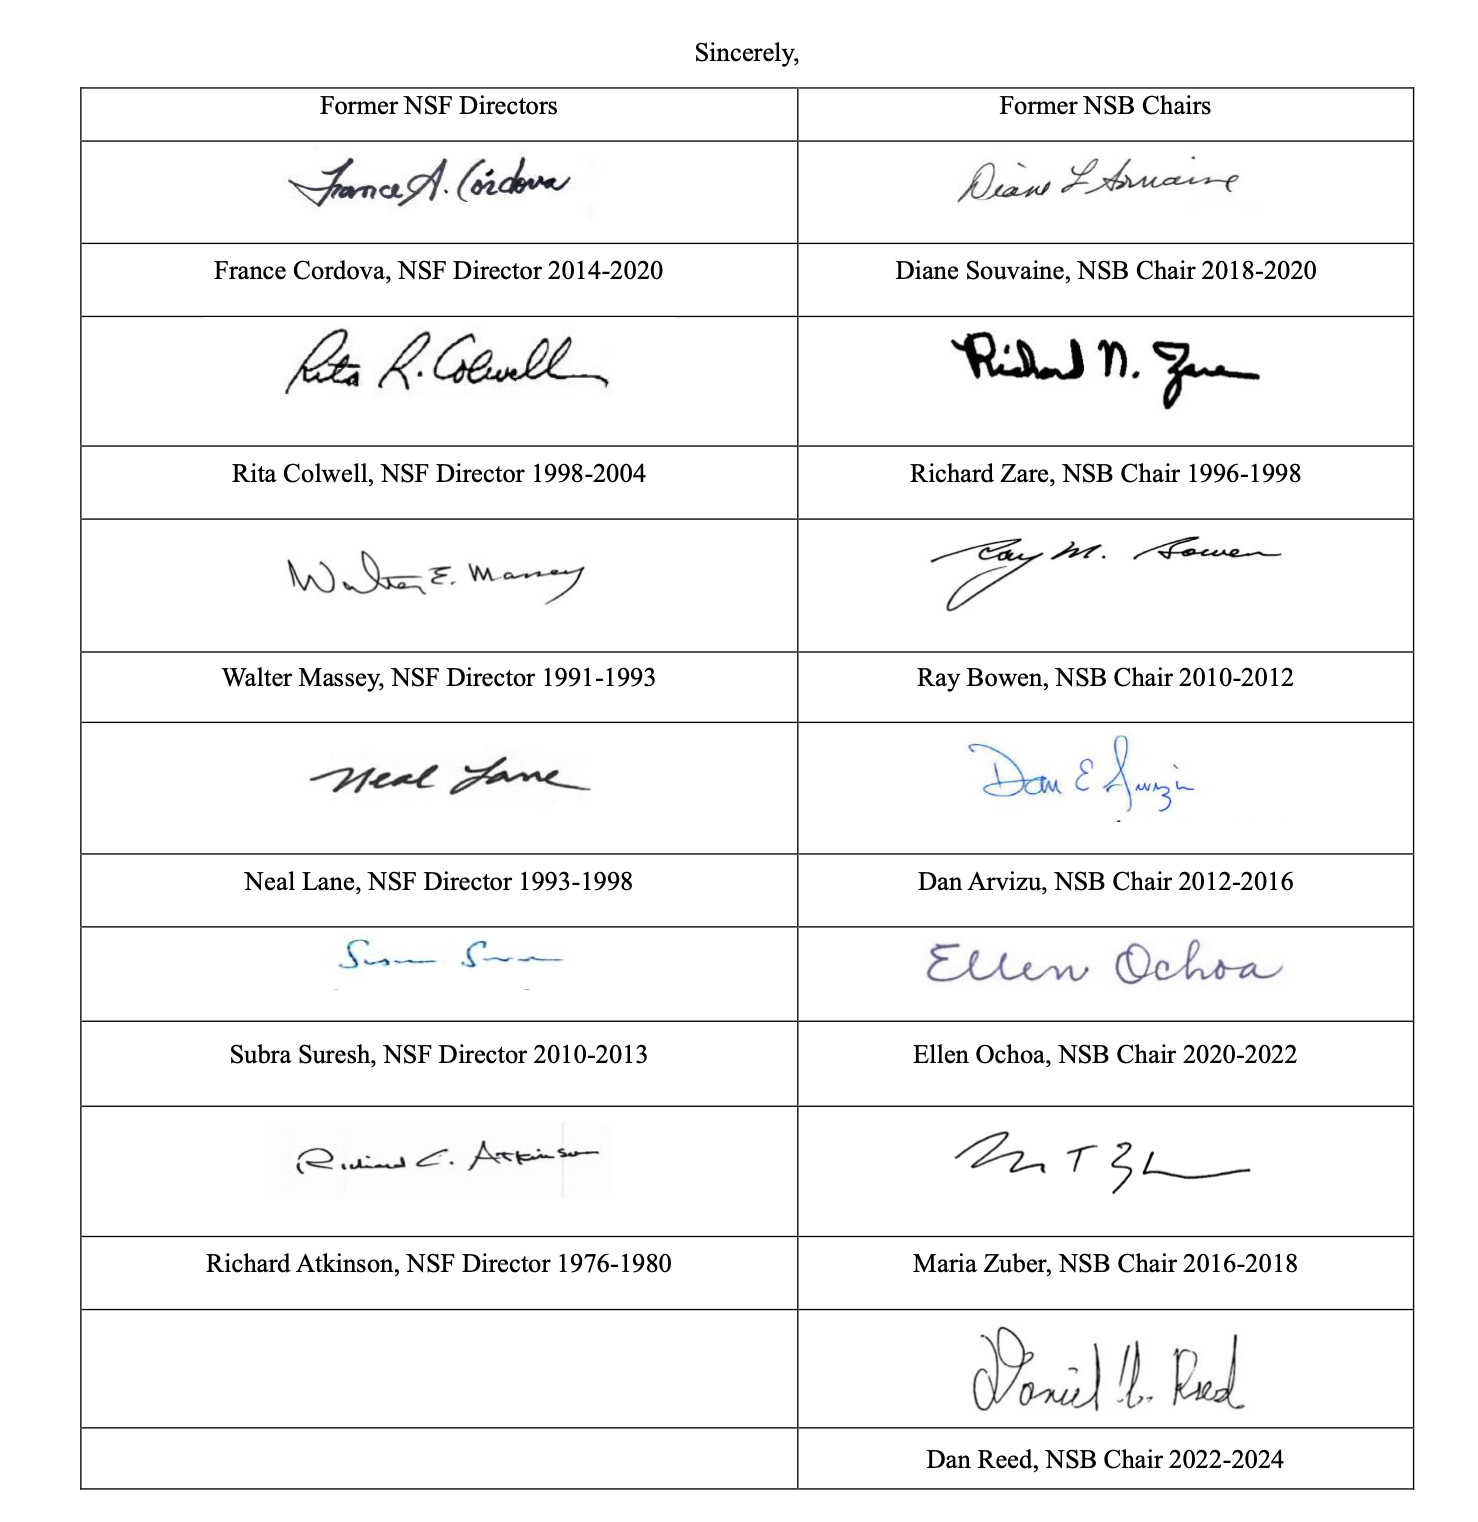 Sincerely,
Former NSF Directors
Former NSB Chairs
France A. Córdova
Diane L Souvaine
France Cordova, NSF Director 2014-2020
Diane Souvaine, NSB Chair 2018-2020
Rita R. Colwell
Richard N. Zare
Rita Colwell, NSF Director 1998-2004
Richard Zare, NSB Chair 1996-1998
Walter E. Massey
Ray M. Bowen
Walter Massey, NSF Director 1991-1993
Ray Bowen, NSB Chair 2010-2012
Neal Lane
Dan E Arvizu
Neal Lane, NSF Director 1993-1998
Dan Arvizu, NSB Chair 2012-2016
Ellen Ochoa
Subra Suresh, NSF Director 2010-2013
Ellen Ochoa, NSB Chair 2020-2022
Richard C. Atkinson
Richard Atkinson, NSF Director 1976-1980
Maria Zuber, NSB Chair 2016-2018
Daniel Reed
Dan Reed, NSB Chair 2022-2024